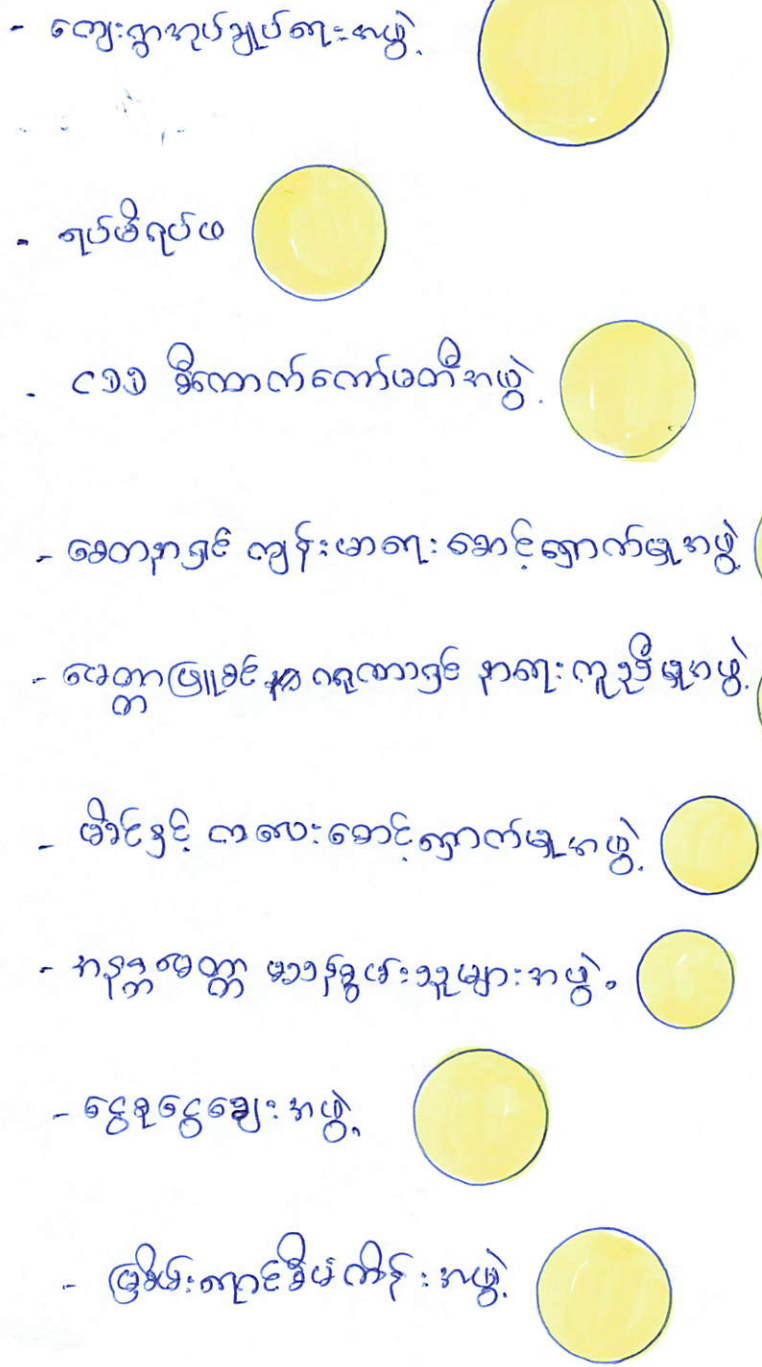 - ကျေးရွာအုပ်ချုပ်ရေးအဖွဲ့
- ရပ်မိရပ်ဖ
- ငါးဦး စီကောက်ကော်မတီအဖွဲ့
- စေတနာရှင် ကျန်းမာရေး စောင့်ရှောက်မှုအဖွဲ့
- မေတ္တာဖြူစင် ဂရုဏာရှင် နာရေးကူညီမှုအဖွဲ့
- မိခင်နှင့် ကလေးစောင့်ရှောက်မှုအဖွဲ့
- အနန္တမေတ္တာ မသန်စွမ်းသူများအဖွဲ့။
- ငွေစုငွေချေးအဖွဲ့
- မြစိမ်းရောင်စီမံကိန်းအဖွဲ့